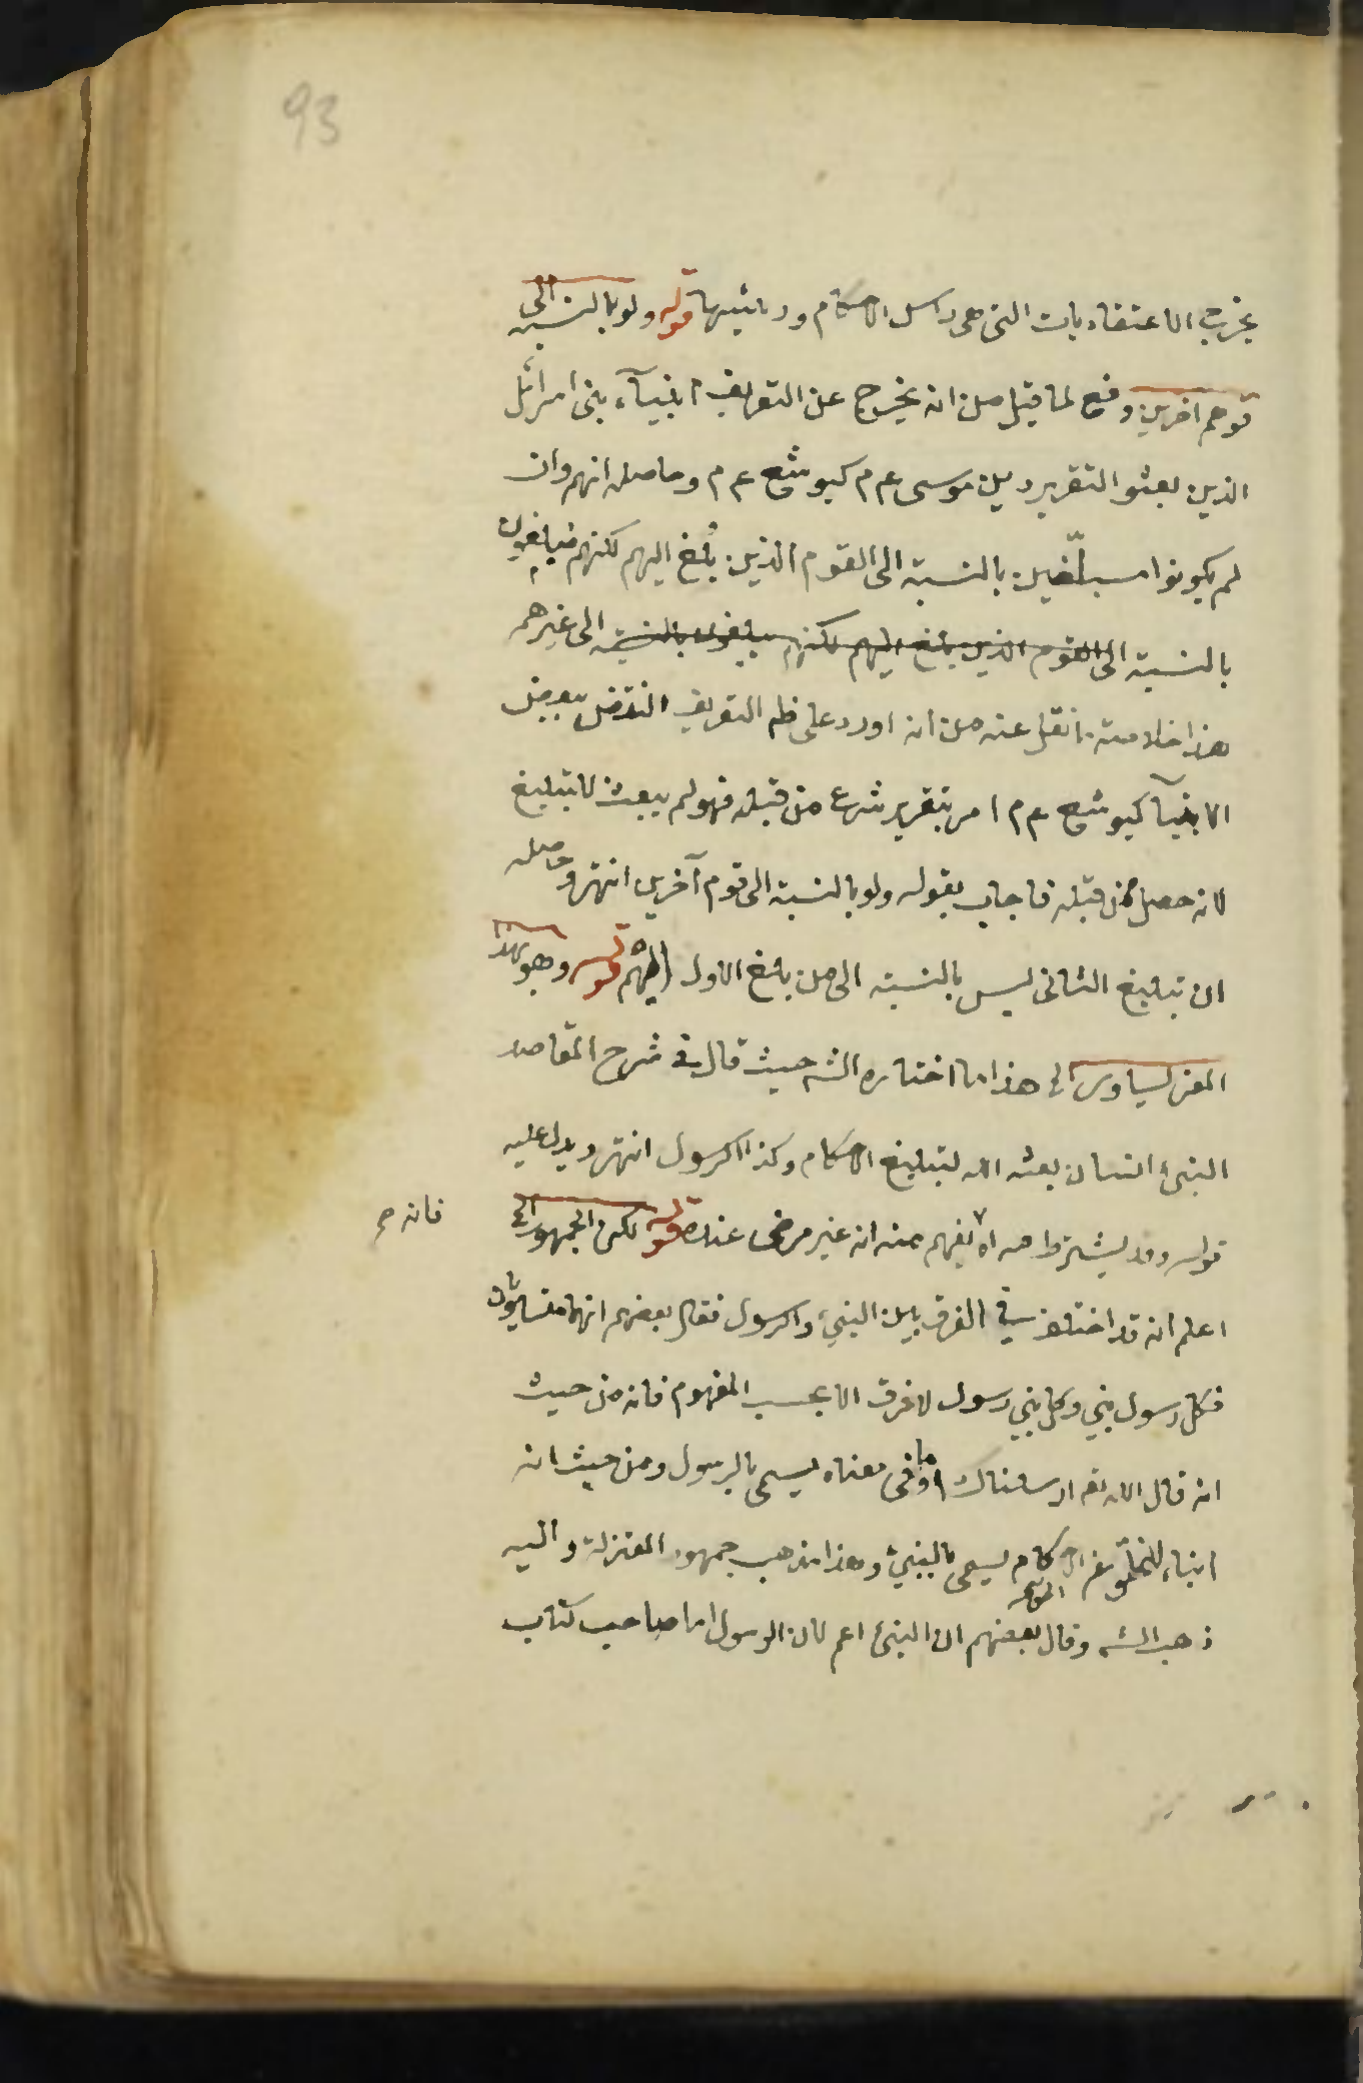 93
يخرج الاعتقاديات التى هى راس الاحكام ورئيسها قوله ولو بالنسبة الى
قوم اخرين دفع لما قيل من انه يخرج عن التعريف انبيآء بنى اسرائل
الذين بعثو التقرير دين موسى عم م كيوشع عم م وحاصله انهم وان
لم يكونوا مبلّغين بالنسبة الى القوم الذين بلغ اليهم لكنهم مبلغون
بالنسبة الى القوم الذين بلغ اليهم لكنهم مبلغون بالنسبة الى غيرهم
هذا خلاصة ما نقل عنه من انه اورد على ظم التعريف النقض ببعض
الانبيآ كيوشع عم م امر بتقرير شرع من قبله فهو لم يبعث لا تبليغ
لانه حصل من قبله فاجاب بقوله ولو بالنسبة الى قوم آخرين انتهر وحاصله
ان تبليغ الثانى ليس بالنسبة الى من بلغ الاول اليهم قوله وهو بهذا
المعنى يساوى الى هذا ما اختاره الشه حيث قال فى شرح المقاصد
النبئ انسان بعثه الله لتبليغ الاحكام وكذا الرسول انتهر ويدل عليه
قوله وقد يشترط اه يفهم منه انه غير مرضى عنده قوله لكن الجمهور الى
فانه ح
اعلم انه قد اختلف فى الفرق بين النبئ والرسول فقال بعضهم انهما متساويان
فكل رسول نبي وكل نبي رسول لا فرق الا بحسب المفهوم فانه من حيث
انه قال الله تعم ارسلناك او ما فى معناه يسمى بالرسول ومن حيث انه
انباء للخلق عن الاحكام يسمى بالنبئ وهذا مذهب جمهور المعتزلة واليه
ذهب الشه وقال بعضهم ان النبئ اعم لان الرسول اما صاحب كتاب